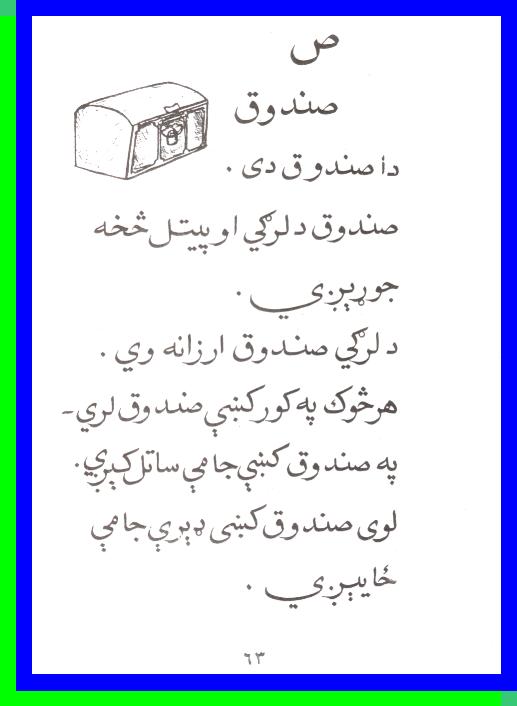 ص
صندوق
دا صندوق دی .
صندوق د لرګي او پيتل څخه
جوړېږي .
د لرګي صندوق ارزانه وي .
هرڅوک په کور کښې صندوق لري -
په صندوق کښې جامې ساتل کېږي .
لوی صندوق کښی ډېرې جامې
ځاييږي .
٦٣